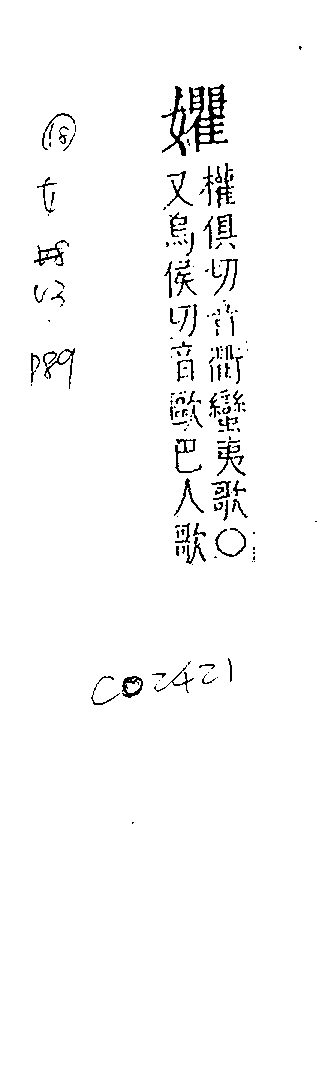 權俱切音衢蠻夷歌○
又烏侯切音歐巴人歌
⑱
女
P89
C02421